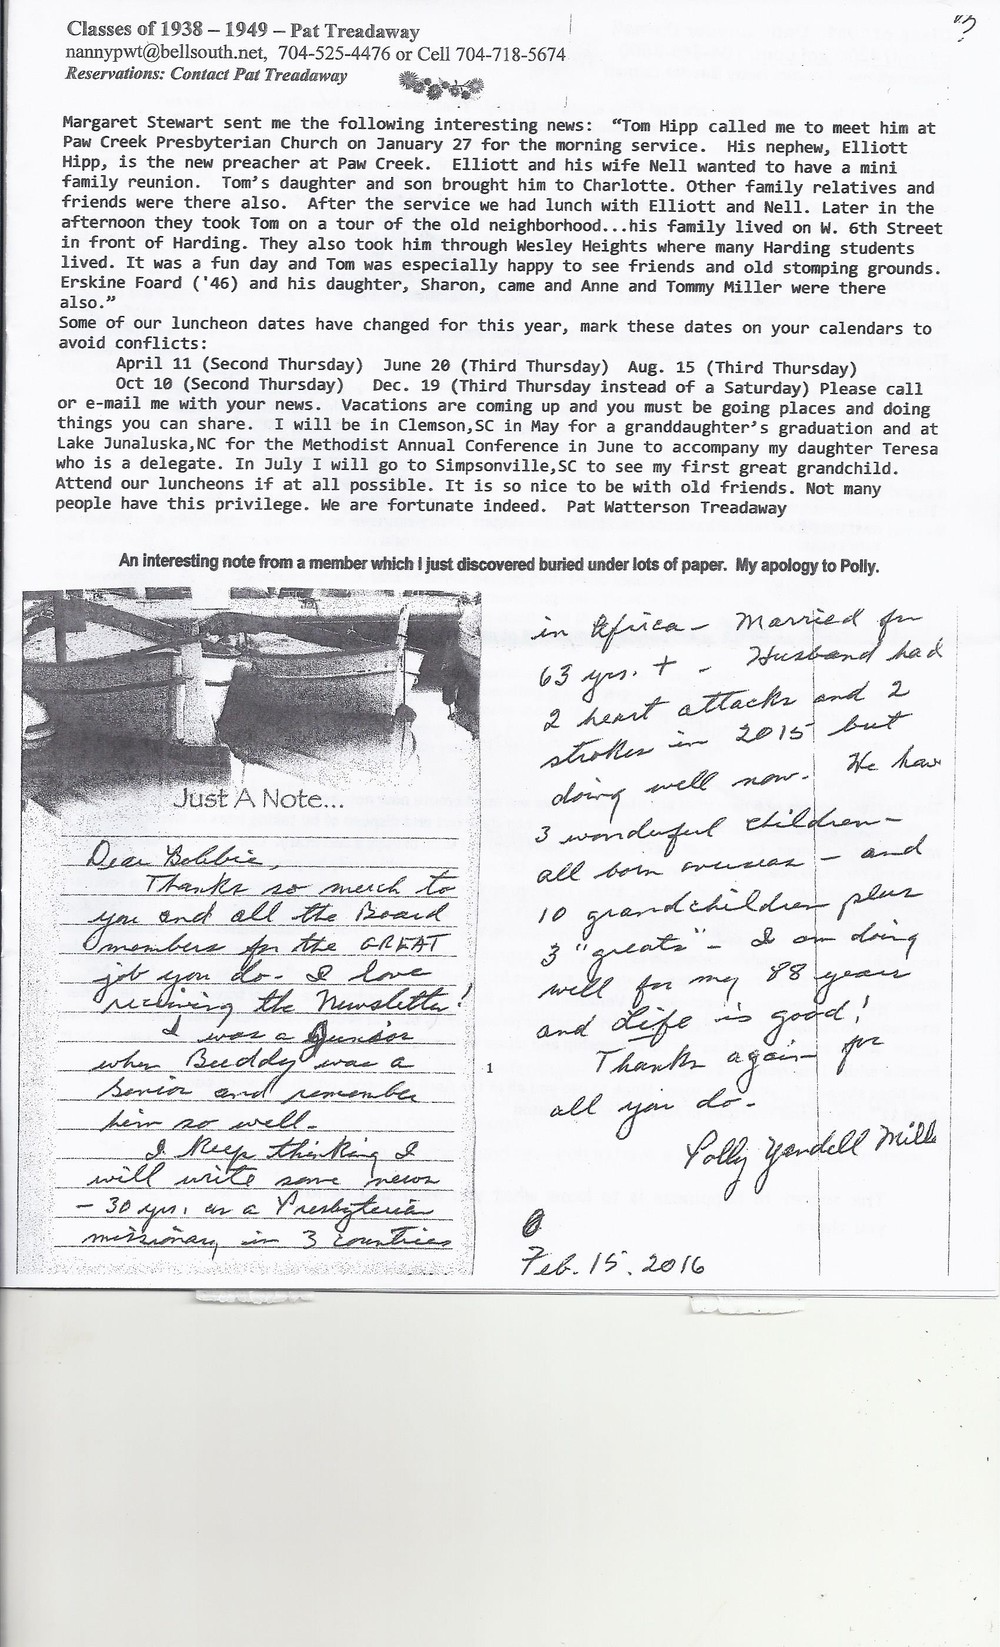 Classes of 1938 – 1949 – Pat Treadaway
nannypwt@bellsouth.net, 704-525-4476 or Cell 704-718-5674
Reservations: Contact Pat Treadaway
Margaret Stewart sent me the following interesting news: “Tom Hipp called me to meet him at
Paw Creek Presbyterian Church on January 27 for the morning service. His nephew, Elliott
Hipp, is the new preacher at Paw Creek. Elliott and his wife Nell wanted to have a mini
family reunion. Tom’s daughter and son brought him to Charlotte. Other family relatives and
friends were there also. After the service we had lunch with Elliott and Nell. Later in the
afternoon they took Tom on a tour of the old neighborhood...his family lived on W. 6th Street
in front of Harding. They also took him through Wesley Heights where many Harding students
lived. It was a fun day and Tom was especially happy to see friends and old stomping grounds.
Erskine Foard ('46) and his daughter, Sharon, came and Anne and Tommy Miller were there
also.”
Some of our luncheon dates have changed for this year, mark these dates on your calendars to
avoid conflicts:
April 11 (Second Thursday) June 20 (Third Thursday) Aug. 15 (Third Thursday)
Oct 10 (Second Thursday) Dec. 19 (Third Thursday instead of a Saturday) Please call
or e-mail me with your news. Vacations are coming up and you must be going places and doing
things you can share. I will be in Clemson,SC in May for a granddaughter’s graduation and at
Lake Junaluska,NC for the Methodist Annual Conference in June to accompany my daughter Teresa
who is a delegate. In July I will go to Simpsonville,SC to see my first great grandchild.
Attend our luncheons if at all possible. It is so nice to be with old friends. Not many
people have this privilege. We are fortunate indeed. Pat Watterson Treadaway
An interesting note from a member which I just discovered buried under lots of paper. My apology to Polly.
Just A Note...
Dear Bobbie,
Thanks so much to
you and all the Board
members for the GREAT
job you do - I love
receiving the Newsletter!
I was a Junior
when Buddy was a
Senior and remember
him so well -
I keep thinking I
will write some news
- 30 yrs. as a Presbyterian
missionary in 3 countries
1
in Africa - Married for
63 yrs. + - Husband had
2 heart attacks and 2
strokes in 2015 but
doing well now. We have
3 wonderful children -
all born overseas - and
10 grandchildren plus
3 "greats" - I am doing
well for my 88 years
and Life is good!
Thanks again for
all you do -
Polly Yandell Mille
Feb. 15. 2016